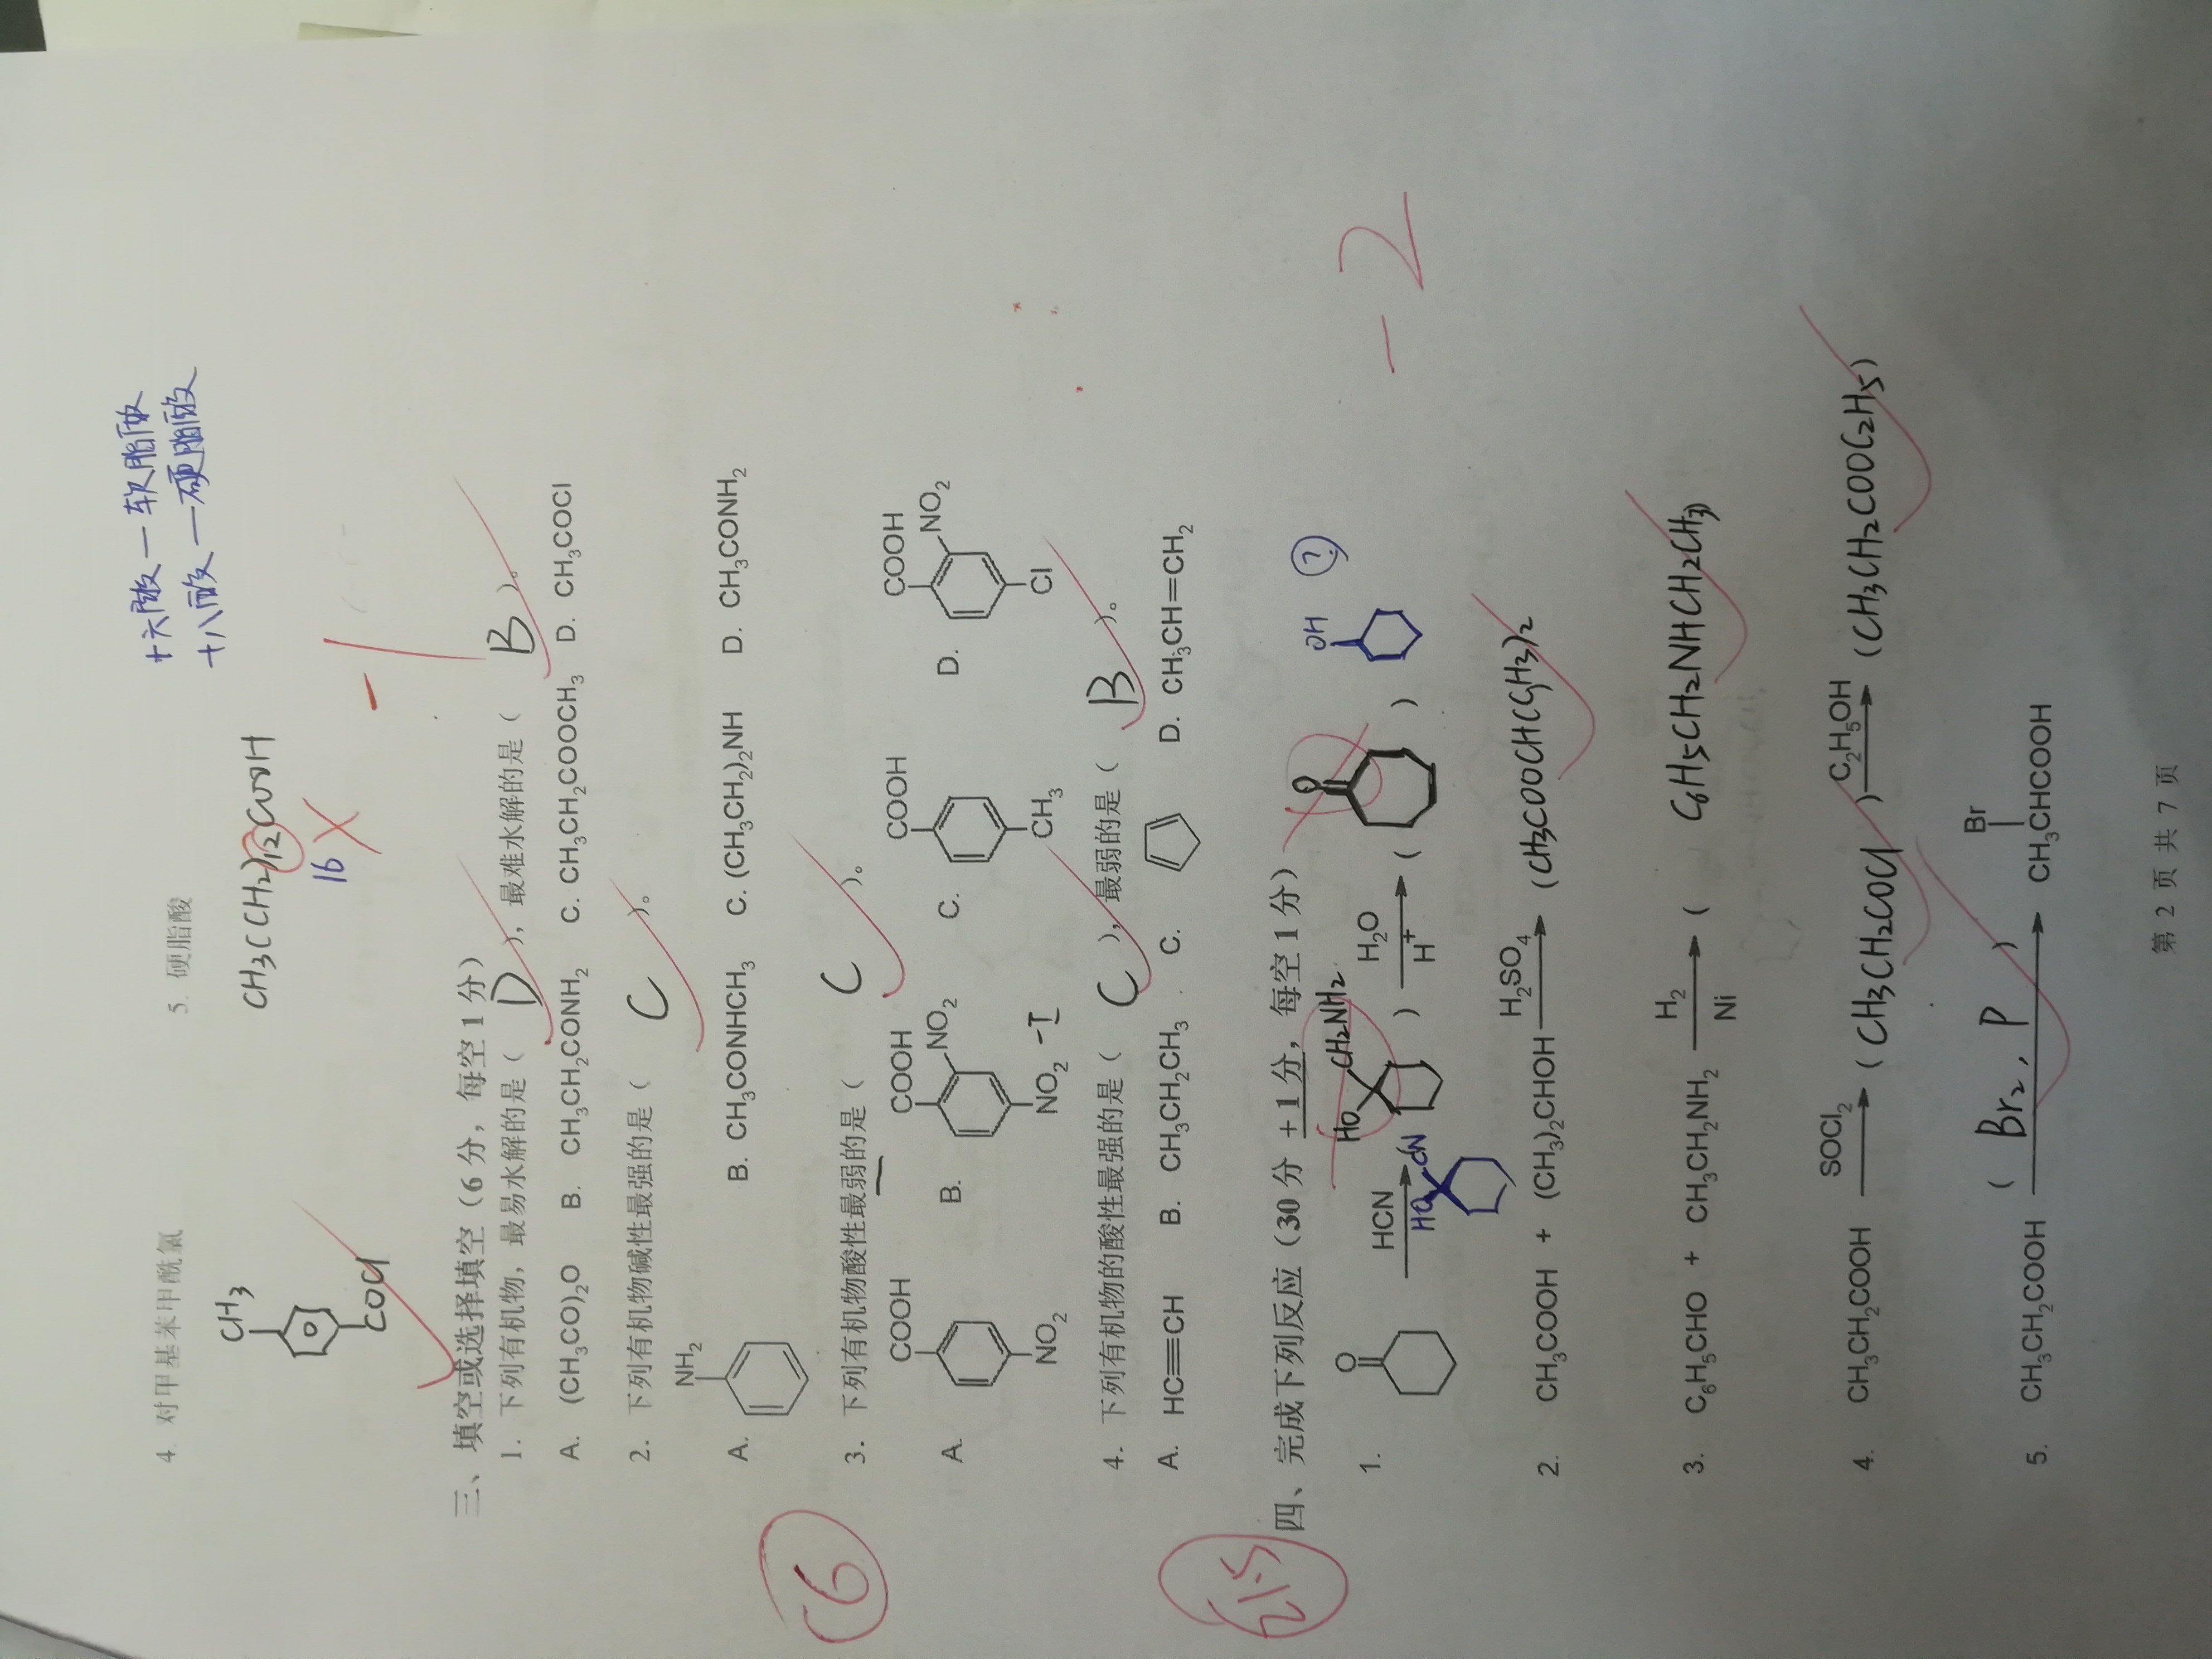 十六酸—软脂酸
十八酸—硬脂酸
4. 对甲基苯甲酰氯 5. 硬脂酸
CH3
COCl
CH3(CH2)12COOH
16
-1
三、填空或选择填空（6分，每空1分）
1. 下列有机物，最易水解的是（ D ），最难水解的是（ B ）。
A. (CH3CO)2O B. CH3CH2CONH2 C. CH3CH2COOCH3 D. CH3COCl
2. 下列有机物碱性最强的是（ C ）。
NH2
A. B. CH3CONHCH3 C. (CH3CH2)2NH D. CH3CONH2
6
3. 下列有机物酸性最弱的是（ C ）。
COOH COOH COOH COOH
NO2 NO2
A. B. C. D.
NO2 NO2 -I CH3 Cl
4. 下列有机物的酸性最强的是（ C ），最弱的是（ B ）。
A. HC≡CH B. CH3CH2CH3 C. D. CH3CH=CH2
21.5
四、完成下列反应（30分 +1分，每空1分）
-2
1. O HCN HO CH2NH2 ) H2O H+ ( O ) OH ?
HO CN
2. CH3COOH + (CH3)2CHOH H2SO4 (CH3COOCH(CH3)2
3. C6H5CHO + CH3CH2NH2 H2 Ni ( C6H5CH2NHCH2CH3)
4. CH3CH2COOH SOCl2 ( CH3CH2COCl ) C2H5OH (CH3CH2COOC2H5)
5. CH3CH2COOH ( Br2, P ) CH3CHCOOH
Br
第 2 页 共 7 页